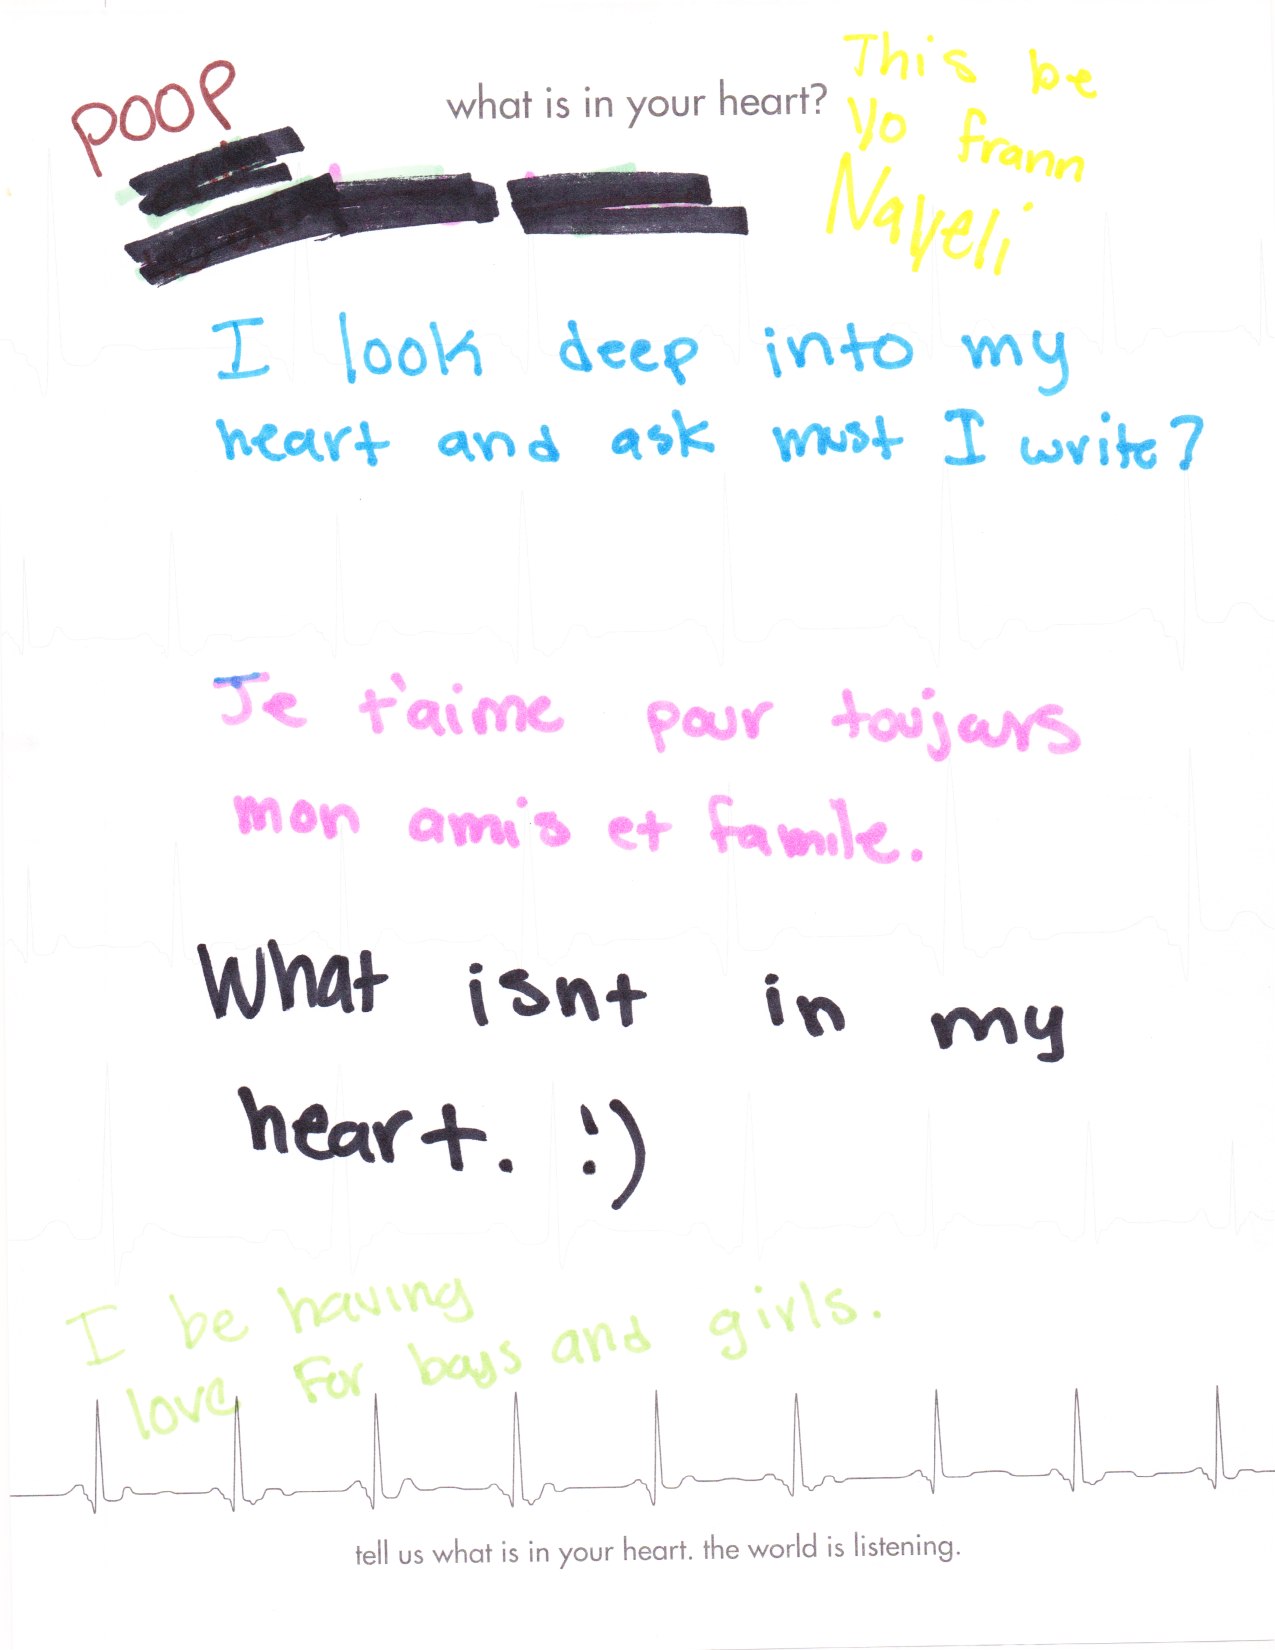 POOP
what is in your heart?
This be
yo frann
Nayeli
I look deep into my
heart and ask must I write?
Je t'aime pour toujours
mon amis et famile.
What isnt in my
heart. :')
I be having
love for boys and girls.
tell us what is in your heart. the world is listening.